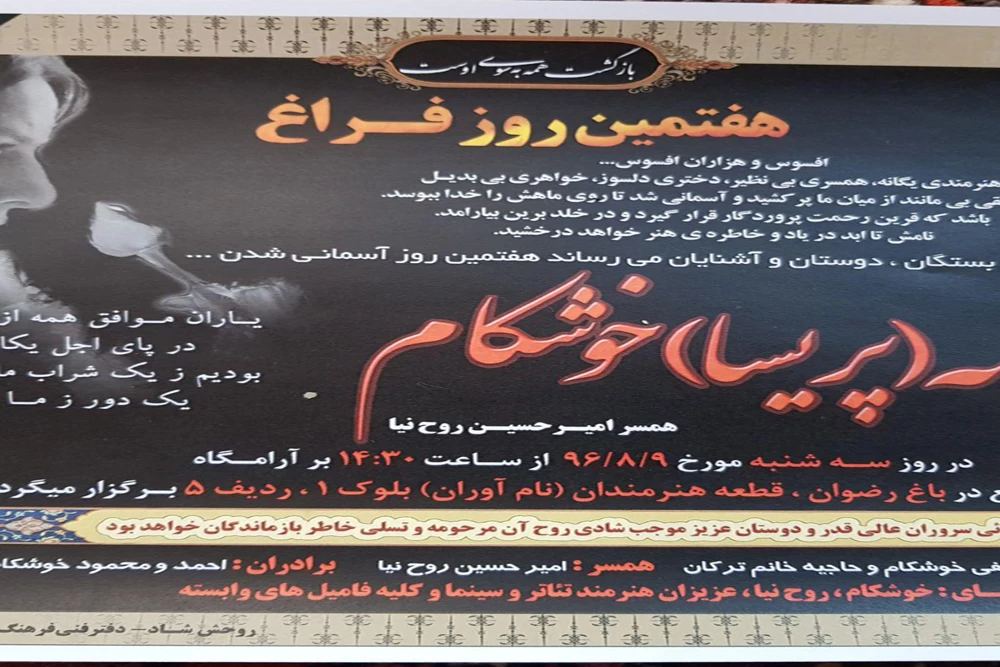 بازگشت همه به سوی اوست
هفتمین روز فــراغ
افسوس و هزاران افسوس...
هنرمندی یگانه، همسری بی نظیر، دختری دلسوز، خواهری بی بدیل
بی مانند از میان ما پر کشید و آسمانی شد تا روی ماهش را خدا ببوسد.
باشد که قرین رحمت پروردگار قرار گیرد و در خلد برین بیارامد.
نامش تا ابد در یاد و خاطره ی هنر خواهد درخشید.
بستگان ، دوستان و آشنایان می رساند هفتمین روز آسمانـی شدن ...
(پریسا) خوشکام
یـاران مـوافق همه از
در پای اجل
بودیم ز یـک شراب
یک دور ز مـا
همسر امیـر حسیـن روح نیا
در روز سـه شنبه مورخ ۹۶/۸/۹ از سـاعت ۱۴:۳۰ بر آرامـگاه
در باغ رضوان ، قطعه هنرمندان (نام آوران) بلوک ۱ ، ردیف ۵ بـرگزار میگرد
سروران عالی قدر و دوستان عزیز موجب شادی روح آن مرحومه و تسلی خاطر بازماندگان خواهد بود
خوشکام و حاجیه خانم ترکان همسر : امیر حسین روح نیا برادران : احمد و محمود خوشکا
خوشکام ، روح نیا ، عزیزان هنرمند تئاتر و سینما و کلیه فامیل های وابسته
روحش شـاد - دفتر فنی فرهنگ